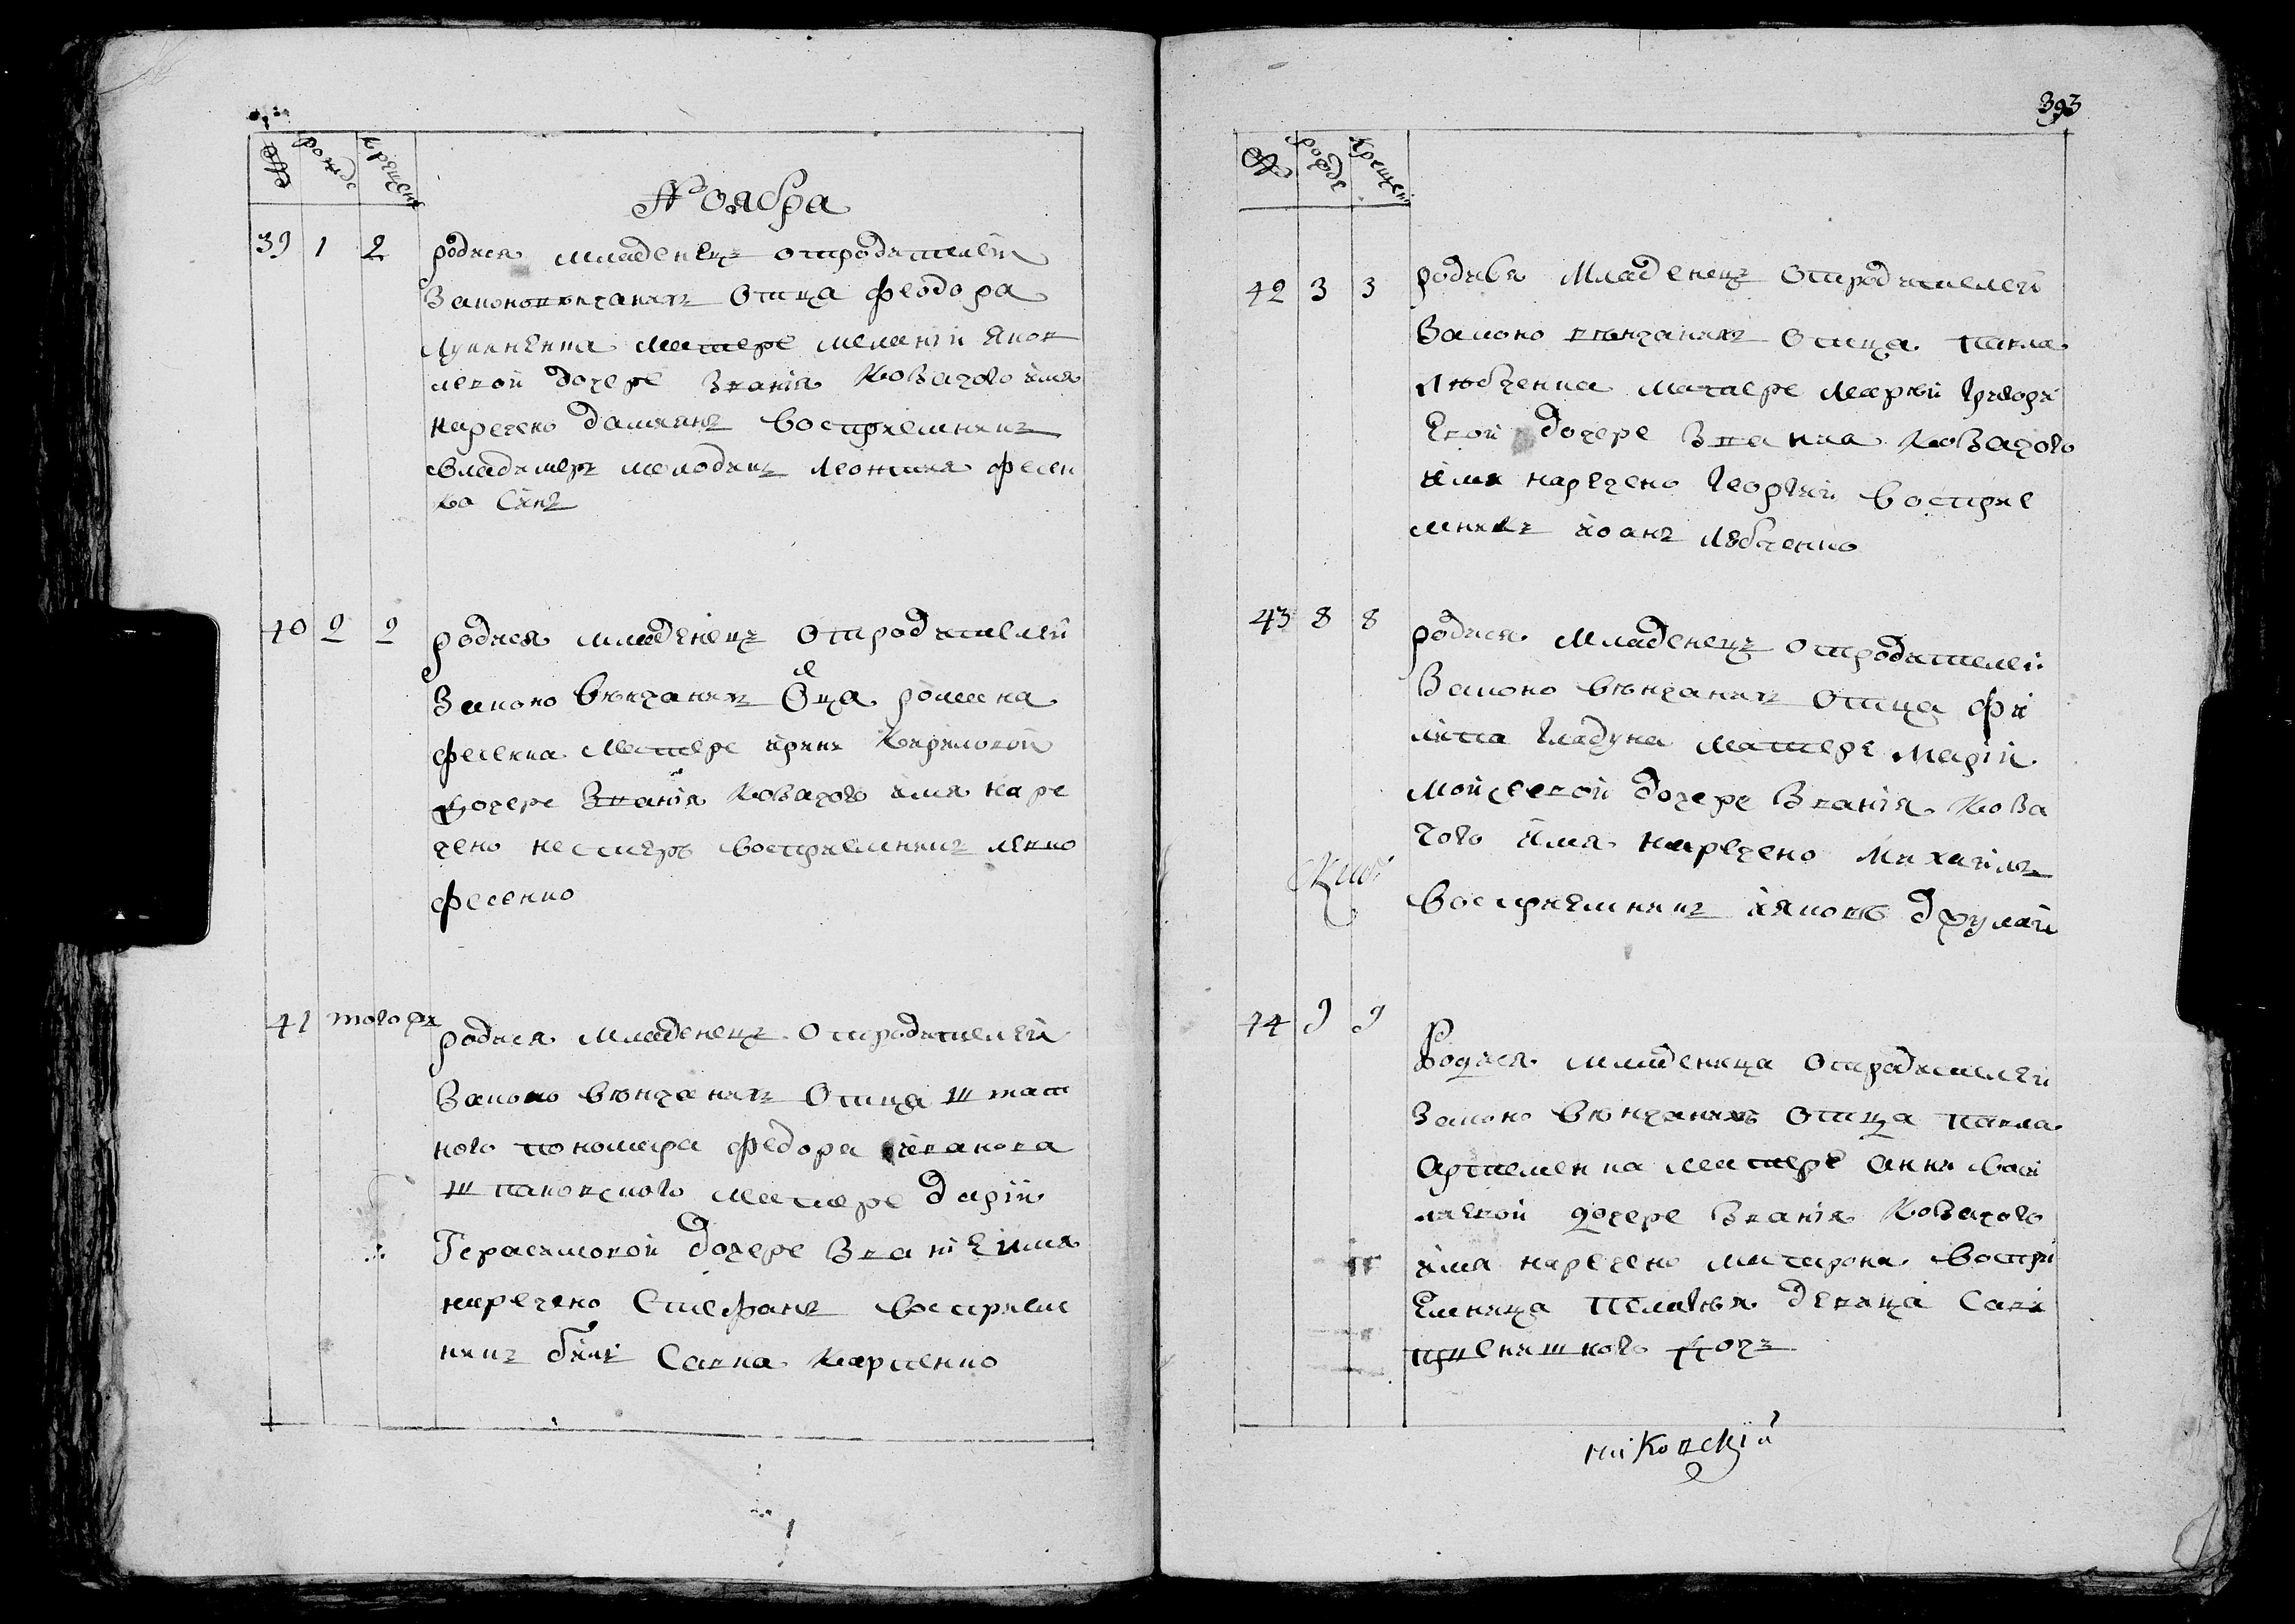 № рожде крещен
Ноября
39 1 2 родися младенецъ отродителей
Законовенчаныхъ Отца феодора
Лупинента матере меланїи Яков
левой дочере Званїя Козачого имя
наречено дамиянъ восприемникъ
владимеръ молодикъ леонтия фесен
ка Синъ
40 2 2 родися младенецъ Отродителей
Законо вѣнчаныхъ Оца романа
фесенка Матере ирини Кириловой
Дочере Званїя Козачого имя наре
чено нестеръ восприемникъ левко
фесенко
41 того рж родися Младенецъ Отродителей
Законо вѣнчаныхъ Отца штат
ного пономара федора иванова
шпаковского матере дарїи
Герасимовой дочере Званїе имя
наречено Стефанъ восприем
никъ билъ Савка Карпенко
393
№ рожде Крещен
42 3 3 родивя Младенецъ Отродителей
Законо вѣнчаныхъ Отца павла
Любченка матере Марїи Григори
Евой дочере Званиа Козачого
имя наречено Георгий восприе
мникъ иоанъ Любченко
43 8 8 родися Младенецъ отродителей
Законо вѣнчаныхъ Отца фи
липа Гладуна матере Марїи
Мойсеевой дочере Званїя Коза
чого имя наречено Михаилъ
восприемникъ ияковъ друлай
44 9 9 Родися младеница Отродителей
Законо вѣнчаныхъ Отца павла
Артеменка матере Анни васи
лиевой дочере Званїя Козачого
имя наречено матрона воспри
Емница Пелагия девица Сави
Дочъ
ковскїй